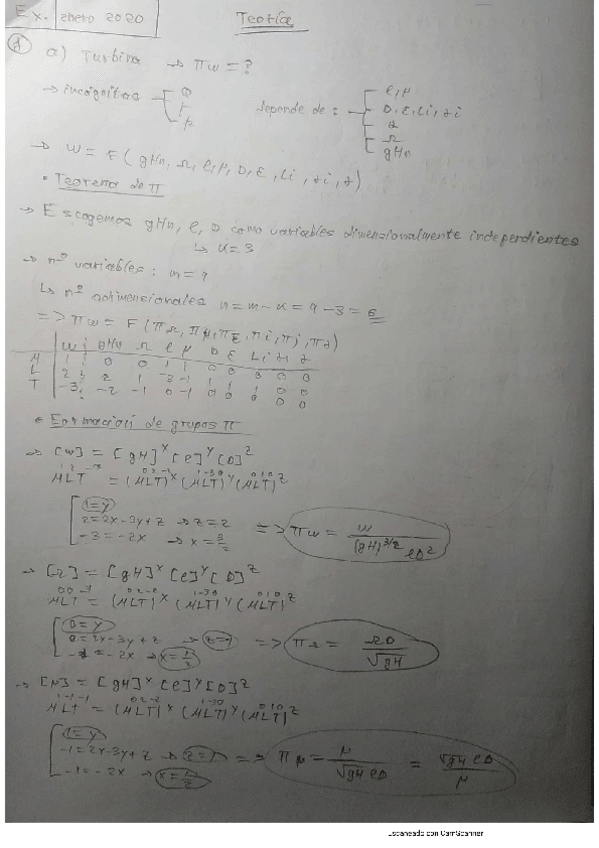 Ex. enero 2020
Teoría
1 a) Turbina → πw = ?
→ incógnitas
Depende de:
ρ, μ
D, ε, Li, αi
α
Ω
gHn
→ W = F (gHn, Ω, ρ, μ, D, ε, Li, αi, α)
• Teorema de π
→ Escogemos gHn, ρ, D como variables dimensionalmente independientes
↳ k = 3
→ nº variables: m = 9
↳ nº adimensionales n = m - k = 9 - 3 = 6
=> πw = F (πΩ, πμ, πε, πi, πj, πα)
W gHn Ω ρ μ D ε Li αi α
M 1 0 0 1 1 0 0 0 0 0
L 2 2
T -3 -2 -1 0 -1 0 0
• Formación de grupos π
→ [W] = [gH]^x [ρ]^y [D]^z
MLT = (MLT)^x (MLT)^y (MLT)^z
1 = y
2 = 2x - 3y + z → z = 2
-3 = -2x → x = 3/2
=> πw = W / (gH)^3/2 ρD²
→ [Ω] = [gH]^x [ρ]^y [D]^z
MLT = (MLT)^x (MLT)^y (MLT)^z
0 = y
0 = 2x - 3y + z
-1 = -2x → x = 1/2
=> πΩ = ΩD / √gH
→ [μ] = [gH]^x [ρ]^y [D]^z
MLT = (MLT)^x (MLT)^y (MLT)^z
1 = y
-1 = 2x - 3y + z → z = 1
-1 = -2x → x = 1/2
=> πμ = μ / √gH ρD = √gH ρD / μ
Escaneado con CamScanner